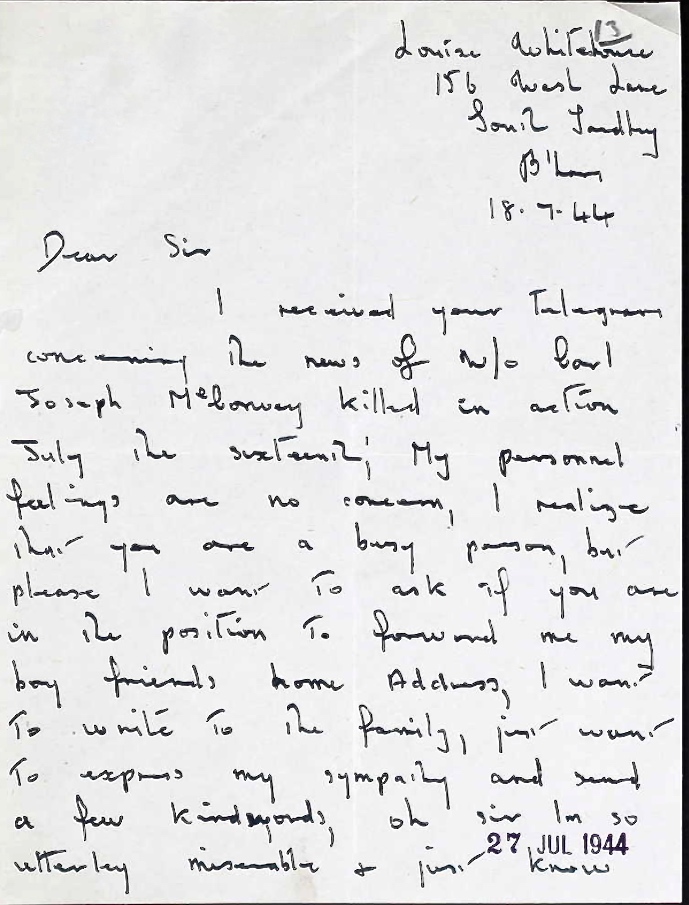 13
Louise Whitehouse
156 West Lane
B'ham
18-7-44
Dear Sir
I received your Telegram
concerning the news of W/O Carl
Joseph McConvey killed in action
July the sixteenth; My personnel
feelings are no concern, I realize
that you are a busy person, but
please I want to ask if you are
in the position to forward me my
boy friends home Address, I want
To write to the family, just want
To express my sympathy and send
a few kindwords, oh sir Im so
27 JUL 1944
utterley miserable + just know